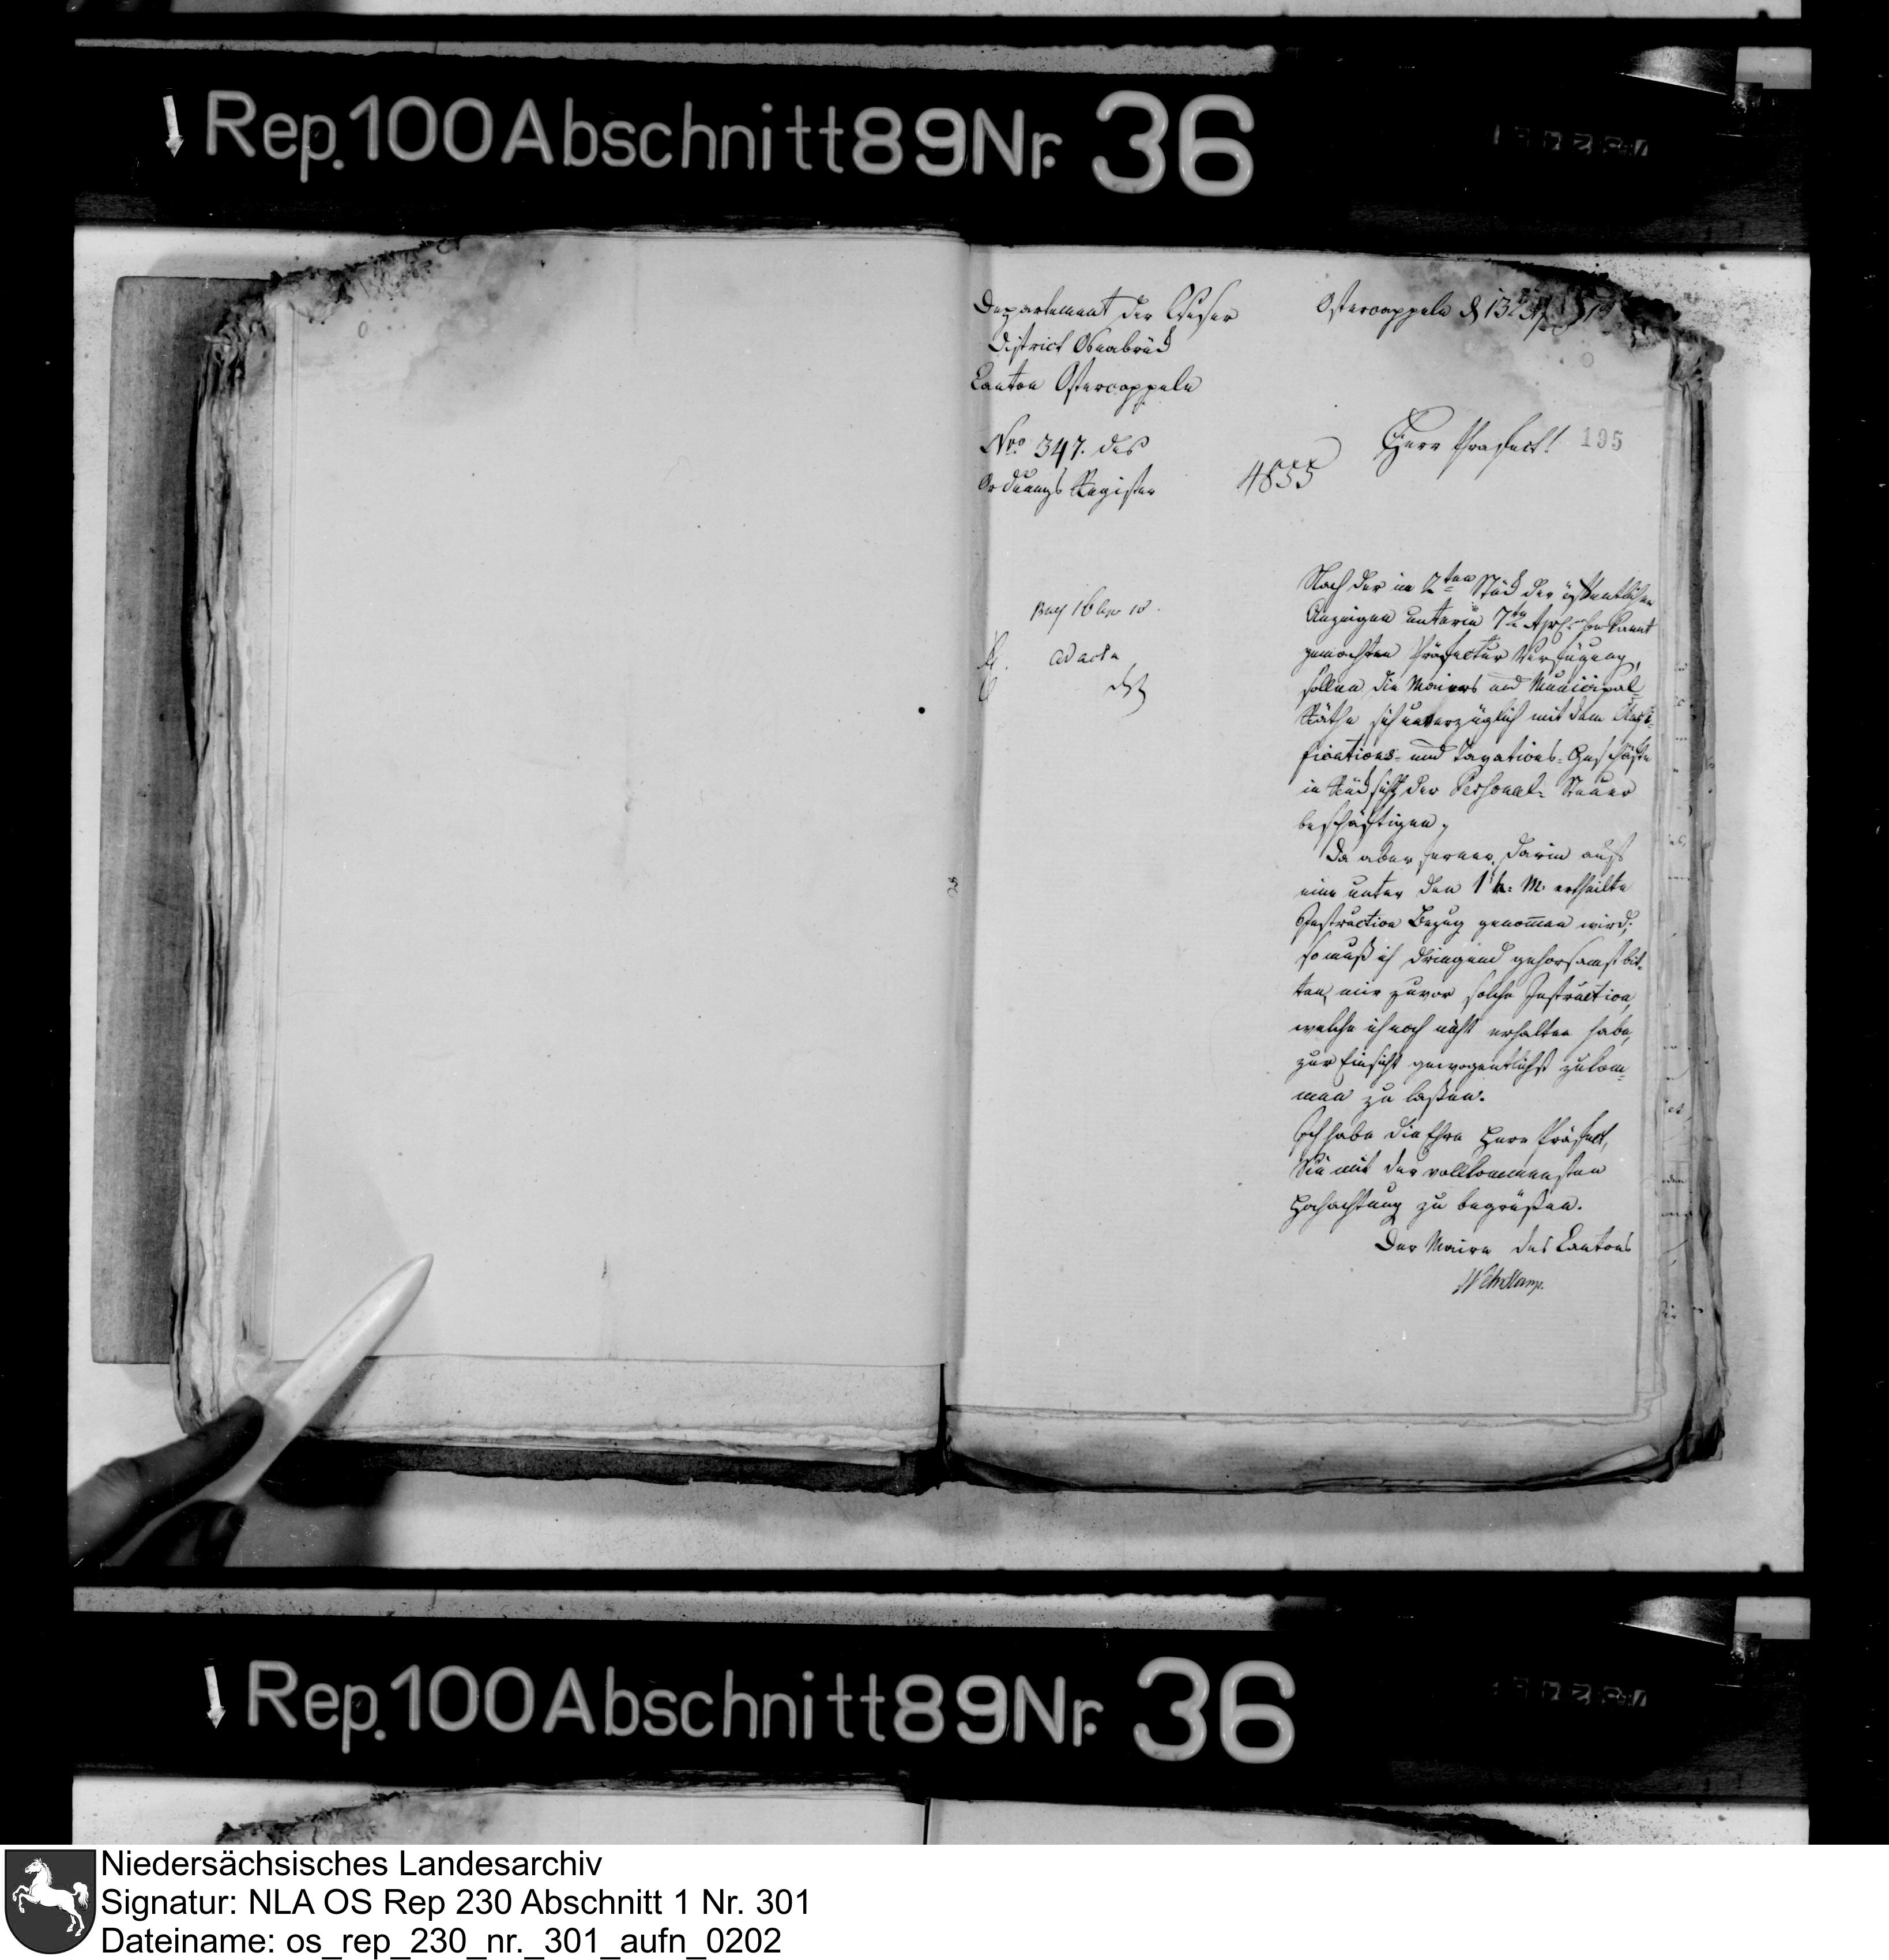 Rep. 100 Abschnitt 89 Nr. 36
Departement der Weser
District Osnabrück
Canton Ostercappeln
Ostercappeln d 13t
Nro. 347. des
Ordnungs Register
4855
Herr Präfect!
195
ad acta
Nach der im 2ten Stück der öffentlichen
Anzeigen unterm 7ten bekannt
gemachten Präfectur Verfügung,
sollen die Maires und Municipal-
Räthe sich unverzüglich mit dem Classi-
fications- und Taxations-Geschäfte
in Rücksicht der Personal-Steuer
beschäftigen,
Da aber ferner darin auf
eine unter den 1t h. M. ertheilte
Instruction Bezug genommen wird;
so muß ich dringend gehorsamst bit-
ten, mir zuvor solche Instruction,
welche ich noch nicht erhalten habe,
zur Einsicht gewogentlichst zukom-
men zu laßen.
Ich habe die Ehre Herr Präfect,
Sie mit der vollkommensten
Hochachtung zu begrüßen.
Der Maire des Cantons
Rep. 100 Abschnitt 89 Nr. 36
Niedersächsisches Landesarchiv
Signatur: NLA OS Rep 230 Abschnitt 1 Nr. 301
Dateiname: os_rep_230_nr._301_aufn_0202